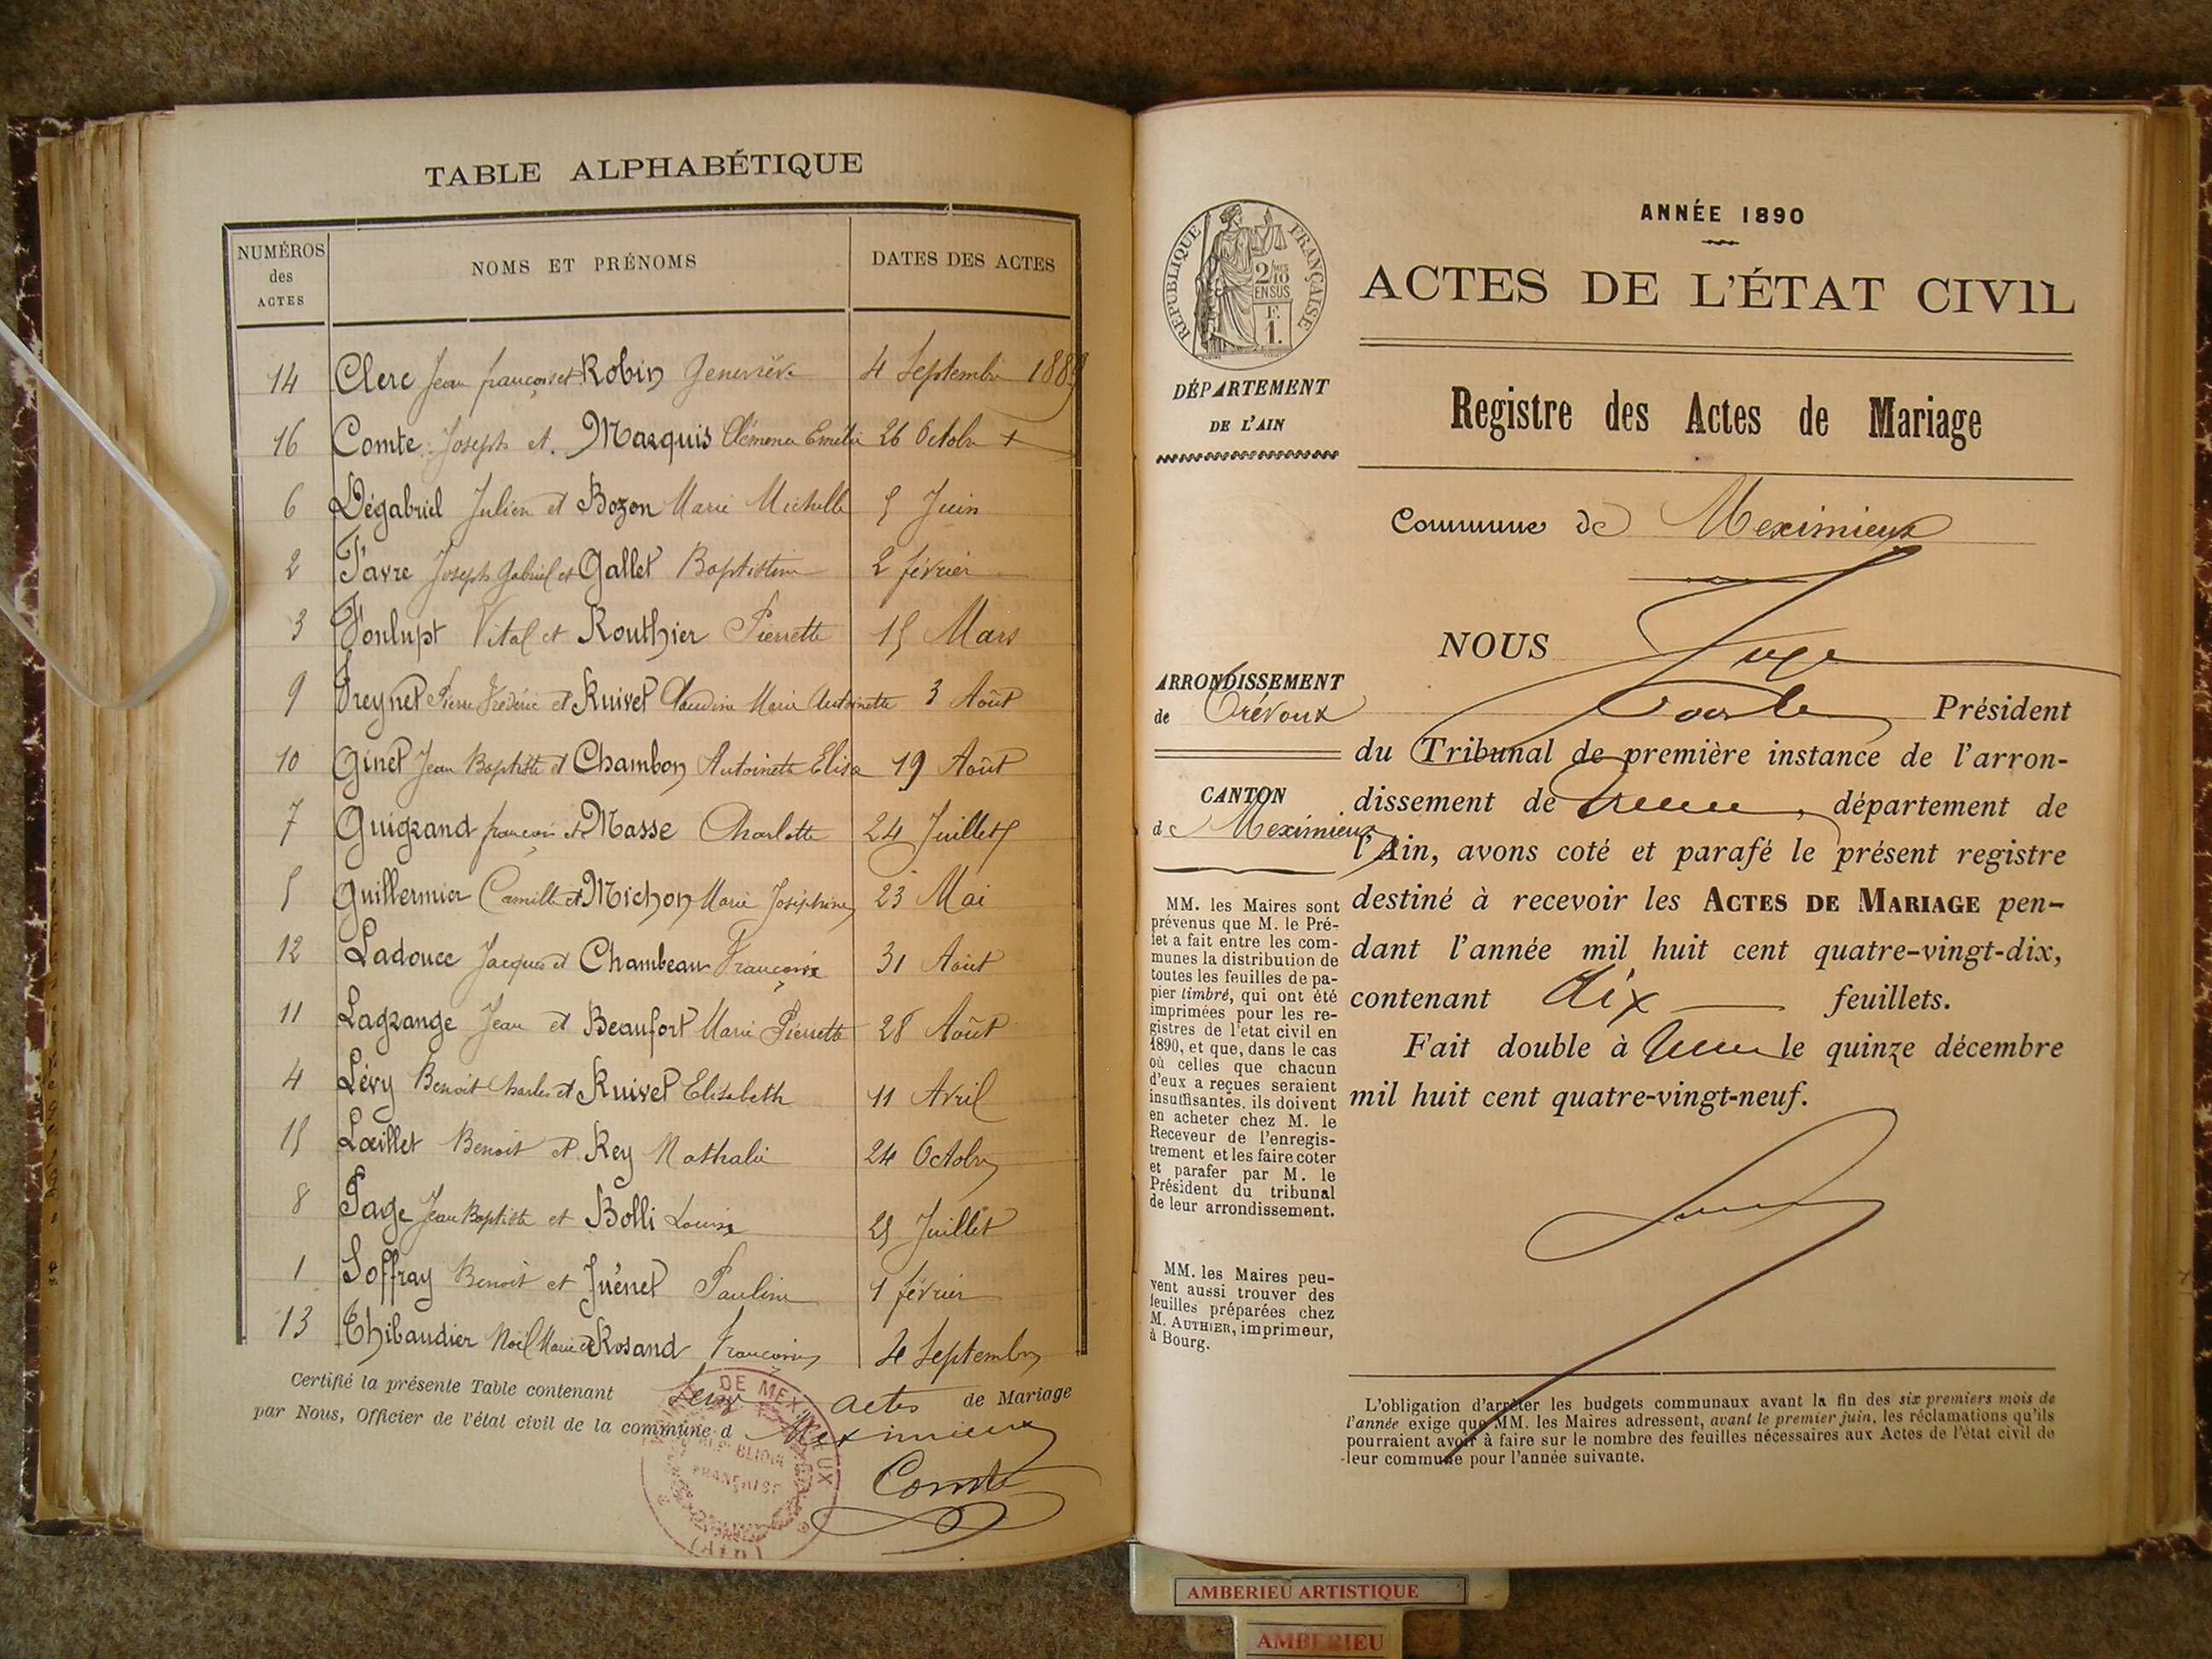 TABLE ALPHABÉTIQUE
NUMÉROS des ACTES
NOMS ET PRÉNOMS
DATES DES ACTES
14 Clerc Jean françois et Robin Geneviève 4 Septembre 1889
16 Comte Joseph et Marquis Clémence Emélie 26 Octobre
6 Dégabriel Julien et Bozon Marie Michelle 5 Juin
2 Favre Joseph Gabriel et Gallet Baptistine 2 février
3 Fonlupt Vital et Routhier Pierrette 15 Mars
9 Freynet Pierre Frédéric et Ruivet Claudine Marie Antoinette 3 Août
10 Ginet Jean Baptiste et Chambon Antoinette Elisa 19 Août
7 Guigrand françois et Masse Charlotte 24 Juillet
5 Guillermier Camille et Michon Marie Joséphine 23 Mai
12 Ladouce Jacques et Chambeau Françoise 31 Août
11 Lagrange Jean et Beaufort Marie Pierrette 28 Août
4 Lévy Benoit Charles et Ruivet Elisabeth 11 Avril
15 Lœillet Benoit et Rey Nathalie 24 Octobre
8 Page Jean Baptiste et Bolli Louise 25 Juillet
1 Soffray Benoit et Juénet Pauline 1 février
13 Thibaudier Noël Marie et Rosand Françoise 4 Septembre
Certifié la présente Table contenant actes de Mariage
par Nous, Officier de l'état civil de la commune d Meximieux
Comte
DE MEXIMIEUX
RÉPUBLIQUE
FRANÇAISE
(Ain)
ANNÉE 1890
ACTES DE L'ÉTAT CIVIL
Registre des Actes de Mariage
RÉPUBLIQUE FRANÇAISE
2/10
EN SUS
F.
1.
DÉPARTEMENT
DE L'AIN
Commune de Meximieux
NOUS
ARRONDISSEMENT
de Trévoux
CANTON
de Meximieux
Président
du Tribunal de première instance de l'arron-
dissement de , département de
l'Ain, avons coté et parafé le présent registre
destiné à recevoir les ACTES DE MARIAGE pen-
dant l'année mil huit cent quatre-vingt-dix,
contenant dix feuillets.
Fait double à le quinze décembre
mil huit cent quatre-vingt-neuf.
MM. les Maires sont
prévenus que M. le Pré-
fet a fait entre les com-
munes la distribution de
toutes les feuilles de pa-
pier timbré, qui ont été
imprimées pour les re-
gistres de l'etat civil en
1890, et que, dans le cas
où celles que chacun
d'eux a reçues seraient
insuffisantes, ils doivent
en acheter chez M. le
Receveur de l'enregis-
trement et les faire coter
et parafer par M. le
Président du tribunal
de leur arrondissement.
MM. les Maires peu-
vent aussi trouver des
feuilles préparées chez
M. AUTHIER, imprimeur,
à Bourg.
L'obligation d'arrêter les budgets communaux avant la fin des six premiers mois de
l'année exige que MM. les Maires adressent, avant le premier juin, les réclamations qu'ils
pourraient avoir à faire sur le nombre des feuilles nécessaires aux Actes de l'état civil de
leur commune pour l'année suivante.
AMBERIEU ARTISTIQUE
AMBERIEU